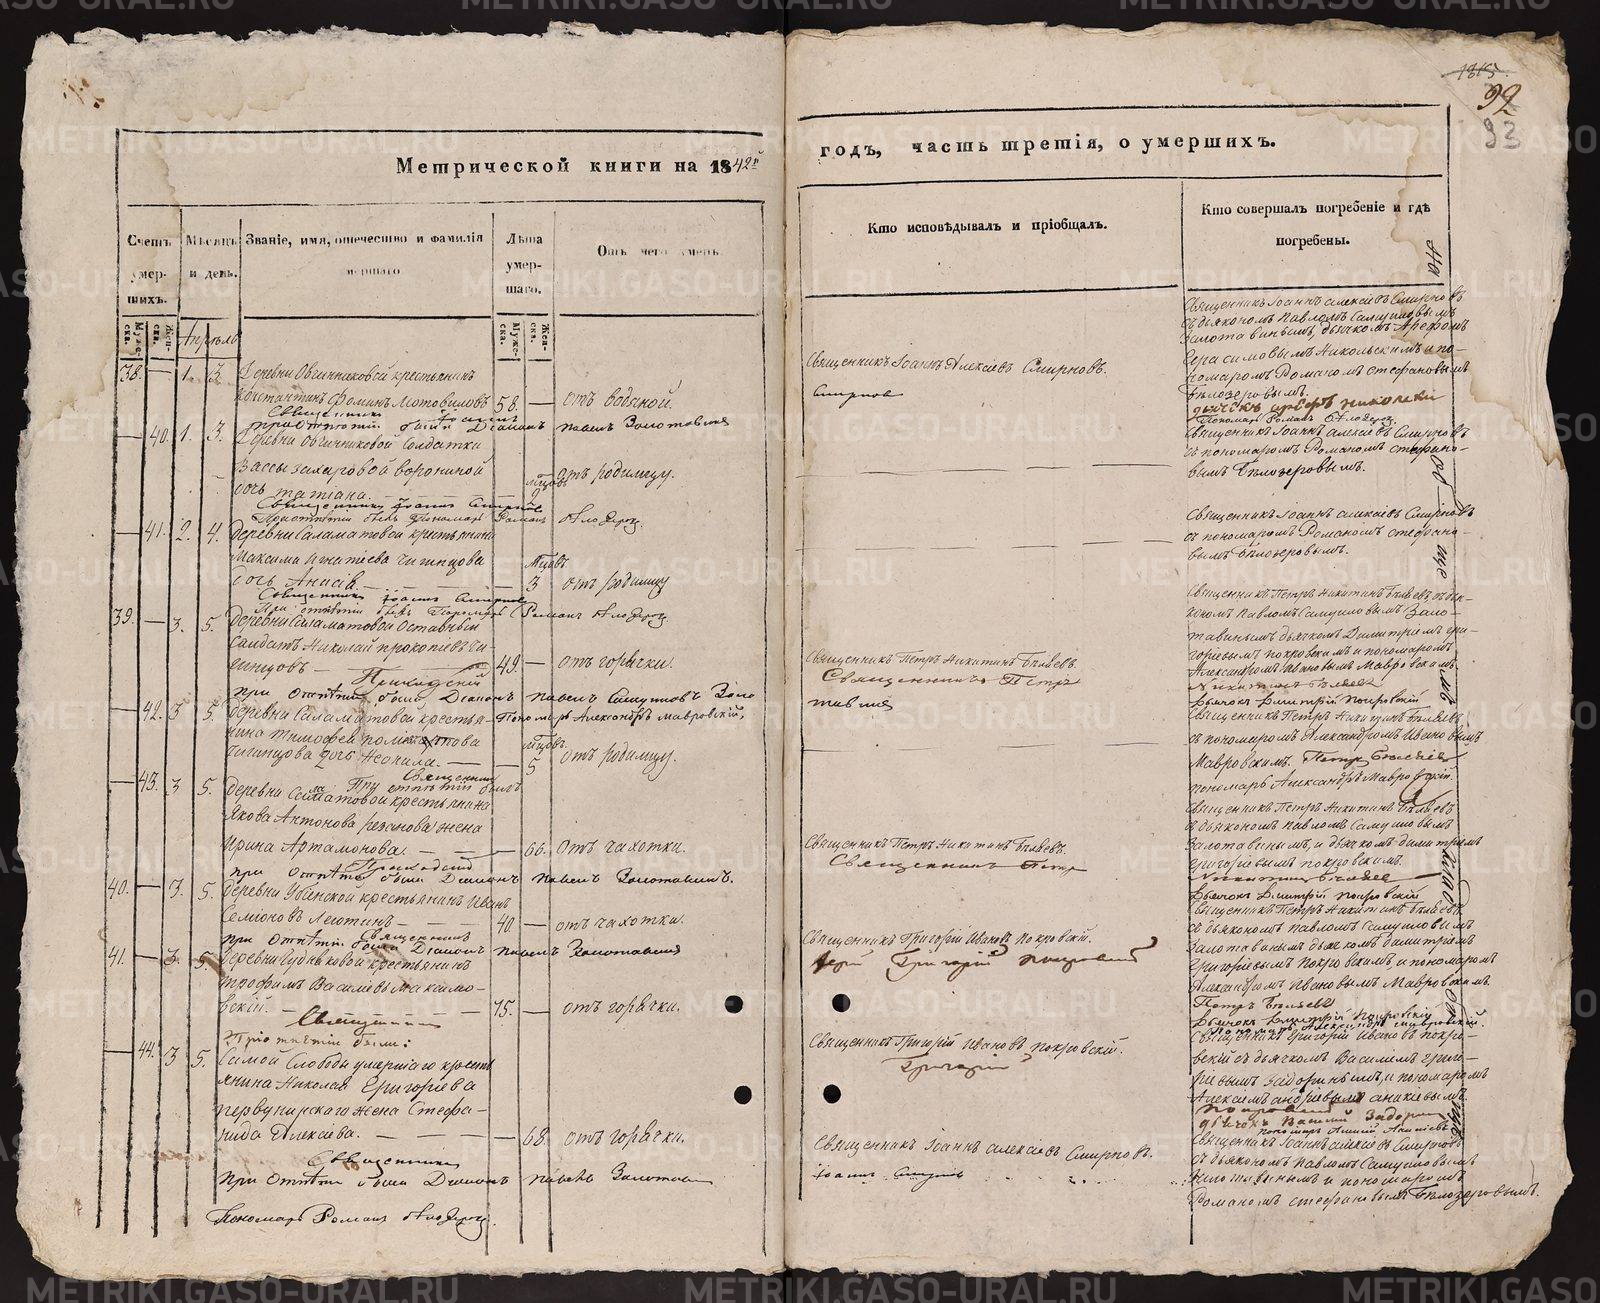 1815.
92
93
Метрической книги на 1842й
годъ, часть третія, о умершихъ.
Счетъ умер-
шихъ.
Мѣсяцъ
и день.
Званіе, имя, отечество и фамилія
мершаго
Лѣта
умер-
шаго.
Отъ чего умеръ.
Кто исповѣдывалъ и пріобщалъ.
Кто совершалъ погребеніе и гдѣ
погребены.
Муже-
ска.
Жен-
ска.
Апрѣль
Муже-
ска.
Жен-
ска.
38. — 1. 3. Деревни Овчинниковой крестьянинъ
Константинъ Фоминъ Мотовиловъ 58. — отъ водяной.
Священникъ Іоаннъ
при отпѣтіи были Діаконъ Павелъ Золотавинъ
Священникъ Іоаннъ Алексіевъ Смирновъ.
Смирновъ
Священникъ Іоаннъ Алексіевъ Смирновъ
съ дьякономъ Павломъ Самуиловымъ
Золотавинымъ, дьячкомъ
Герасимовымъ Никольскимъ и по-
номаромъ Романомъ Стефановымъ
Бѣлозеровымъ.
— 40. 1. 3. Деревни Овчинниковой солдатки
Вассы Захаровой Ворониной
дочь Татіана. — мцовъ 9 отъ родимцу.
Священникъ Іоаннъ Смирновъ
Священникъ Іоаннъ Алексіевъ Смирновъ
съ пономаромъ Романомъ Стефано-
вымъ Бѣлозеровымъ.
— 41. 2. 4. Деревни Саламатовой крестьянина
Максима Игнатіева Чигинцова
дочь Анисія — мцовъ 3 отъ родимцу
Священникъ Іоаннъ Смирновъ
При отпѣтіи былъ Пономарь Романъ Бѣлозеровъ
Священникъ Іоаннъ Алексіевъ Смирновъ
съ пономаромъ Романомъ Стефано-
вымъ Бѣлозеровымъ.
39. — 3. 5. Деревни Саламатовой отставный
солдатъ Николай Прокопіевъ Чи-
гинцовъ — 49. — отъ горячки.
при отпѣтіи были Діаконъ Павелъ Самуиловъ Золо
тавинъ
Священникъ Петръ Никитинъ Бѣляевъ.
Священникъ Петръ
Священникъ Петръ Никитинъ Бѣляевъ съ дья-
кономъ Павломъ Самуиловымъ Золо-
тавинымъ дьячкомъ Димитріемъ Гри-
горіевымъ Покровскимъ и пономаромъ
Александромъ Ивановымъ Мавровскимъ.
Никитинъ Бѣляевъ
Дьячокъ Димитрій Покровскій
Пономарь Александръ Мавровскій,
— 42. 3 5. Деревни Саламатовой крестья-
нина Тимофея
Чигинцова дочь Неонила. — мцовъ 5 отъ родимцу.
Священникъ
При отпѣтіи былъ
Священникъ Петръ Никитинъ Бѣляевъ
съ пономаромъ Александромъ Ивановымъ
Мавровскимъ. Петръ Бѣляевъ
пономарь Александръ Мавровскій.
— 43. 3 5. Деревни Саламатовой крестьянина
Якова Антонова Резанова жена
Ирина Артамонова. — 66. Отъ чахотки.
при отпѣтіи были Діаконъ Павелъ Золотавинъ.
Священникъ Петръ Никитинъ Бѣляевъ.
Священникъ Петръ
Священникъ Петръ Никитинъ Бѣляевъ
съ дьякономъ Павломъ Самуиловымъ
Золотавинымъ, и дьячкомъ Димитріемъ
Григоріевымъ Покровскимъ.
Никитинъ Бѣляевъ
Дьячокъ Димитрій Покровскій
40. — 3. 5. Деревни Убѣнской крестьянинъ Иванъ
Семіоновъ Леготинъ — 40. — отъ чахотки.
Священникъ
при отпѣтіи были Діаконъ Павелъ Золотавинъ
Священникъ Григорій Ивановъ Покровскій.
Іерей Григорій Покровскій
Священникъ Петръ Никитинъ Бѣляевъ
съ дьякономъ Павломъ Самуиловымъ
Золотавинымъ дьячкомъ Димитріемъ
Григоріевымъ Покровскимъ, и пономаромъ
Александромъ Ивановымъ Мавровскимъ.
Петръ Бѣляевъ
Дьячокъ Димитрій Покровскій
Пономарь Александръ Мавровскій.
41. — 3 5. Деревни Гудьковой крестьянинъ
Трофимъ Василіевъ Максимо-
вскій. — 75. — отъ горячки.
Священникъ
При отпѣтіи были:
Священникъ Григорій Ивановъ Покровскій.
Григорій
Священникъ Григорій Ивановъ Покро-
вскій съ дьячкомъ Василіемъ Григо-
ріевымъ Задоринымъ, и пономаромъ
Алексіемъ Андріевымъ Аникіевымъ.
Покровскій
дьячокъ Василій Задоринъ
пономарь Алексій Аникіевъ
— 44. 3 5. Самой Слободы умершаго крестья
янина Николая Григоріева
Первушинскаго жена Стефа-
нида Алексіева. — 68. отъ горячки.
Священникъ
при отпѣтіи были Діаконъ Павелъ Золотави
Пономарь Романъ Бѣлозеровъ.
Священникъ Іоаннъ Алексіевъ Смирновъ.
Іоаннъ Смирновъ
Священникъ Іоаннъ Алексіевъ Смирновъ
съ дьякономъ Павломъ Самуиловымъ
Золотавинымъ и пономаромъ
Романомъ Стефановымъ Бѣлозеровымъ.
На
общемъ
кладбищѣ
METRIKI.GASO-URAL.RU